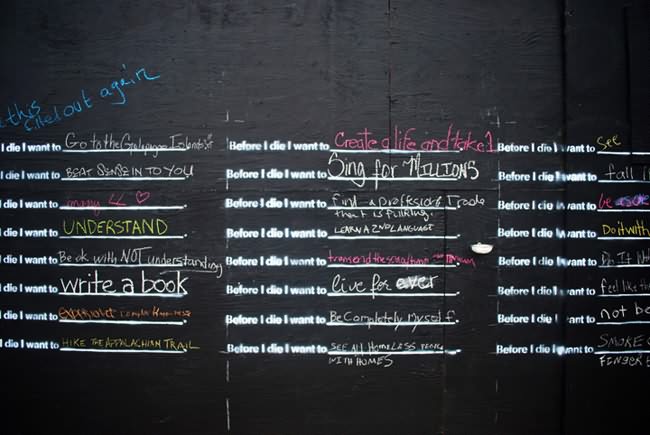 this
filled out again
I die I want to Go to the Galapagos Islands
I die I want to BEAT SENSE IN TO YOU
I die I want to marry
I die I want to UNDERSTAND
I die I want to Be ok with NOT understanding
I die I want to write a book
I die I want to experience complete Happiness
I die I want to HIKE THE APPALACHIAN TRAIL
Before I die I want to Create a life and take 1
Before I die I want to Sing for MILLIONS
Before I die I want to find a profession/Trade
that is fulfilling.
Before I die I want to LEARN A 2ND LANGUAGE
Before I die I want to transcend the
Before I die I want to live for ever
Before I die I want to Be Completely Myself.
Before I die I want to SEE ALL HOMELESS PEOPLE
WITH HOMES
Before I die I want to See
Before I die I want to fall i
Before I die I want to be
Before I die I want to Do it with
Before I die I want to Do It With
Before I die I want to feel like th
Before I die I want to not be
Before I die I want to SMOKE
FINGER